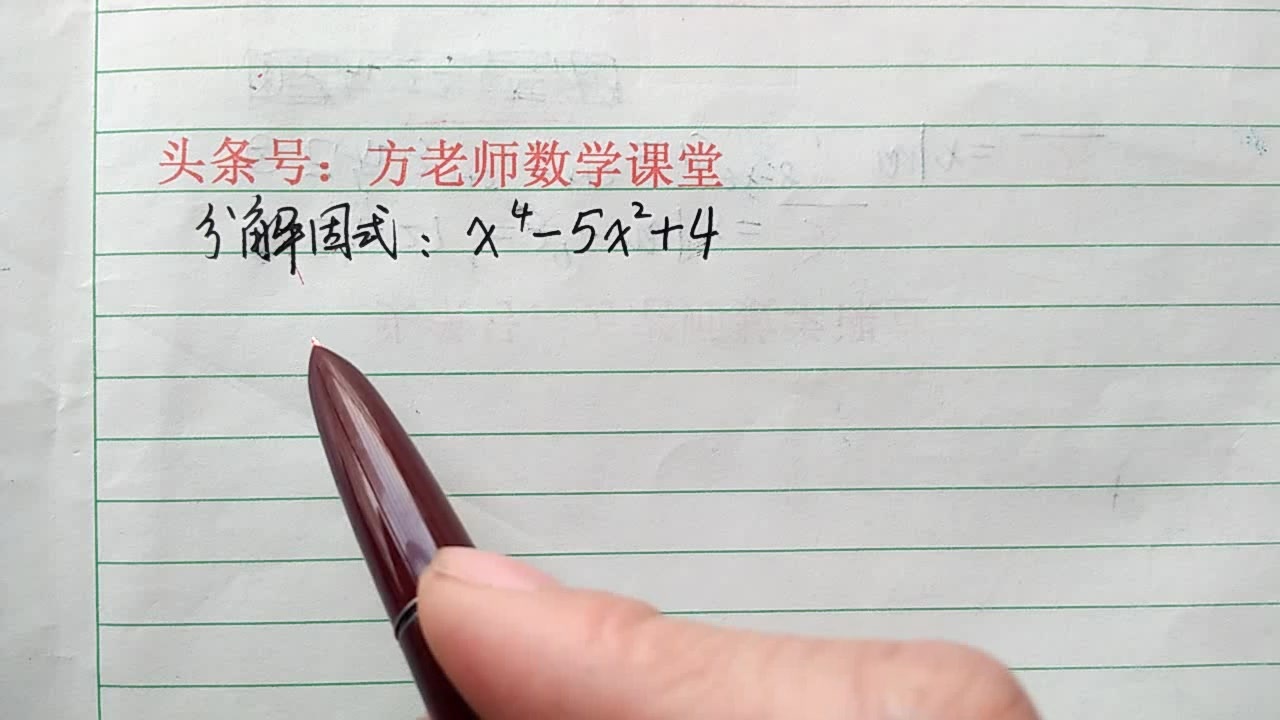 头条号：方老师数学课堂
分解因式：x⁴-5x²+4